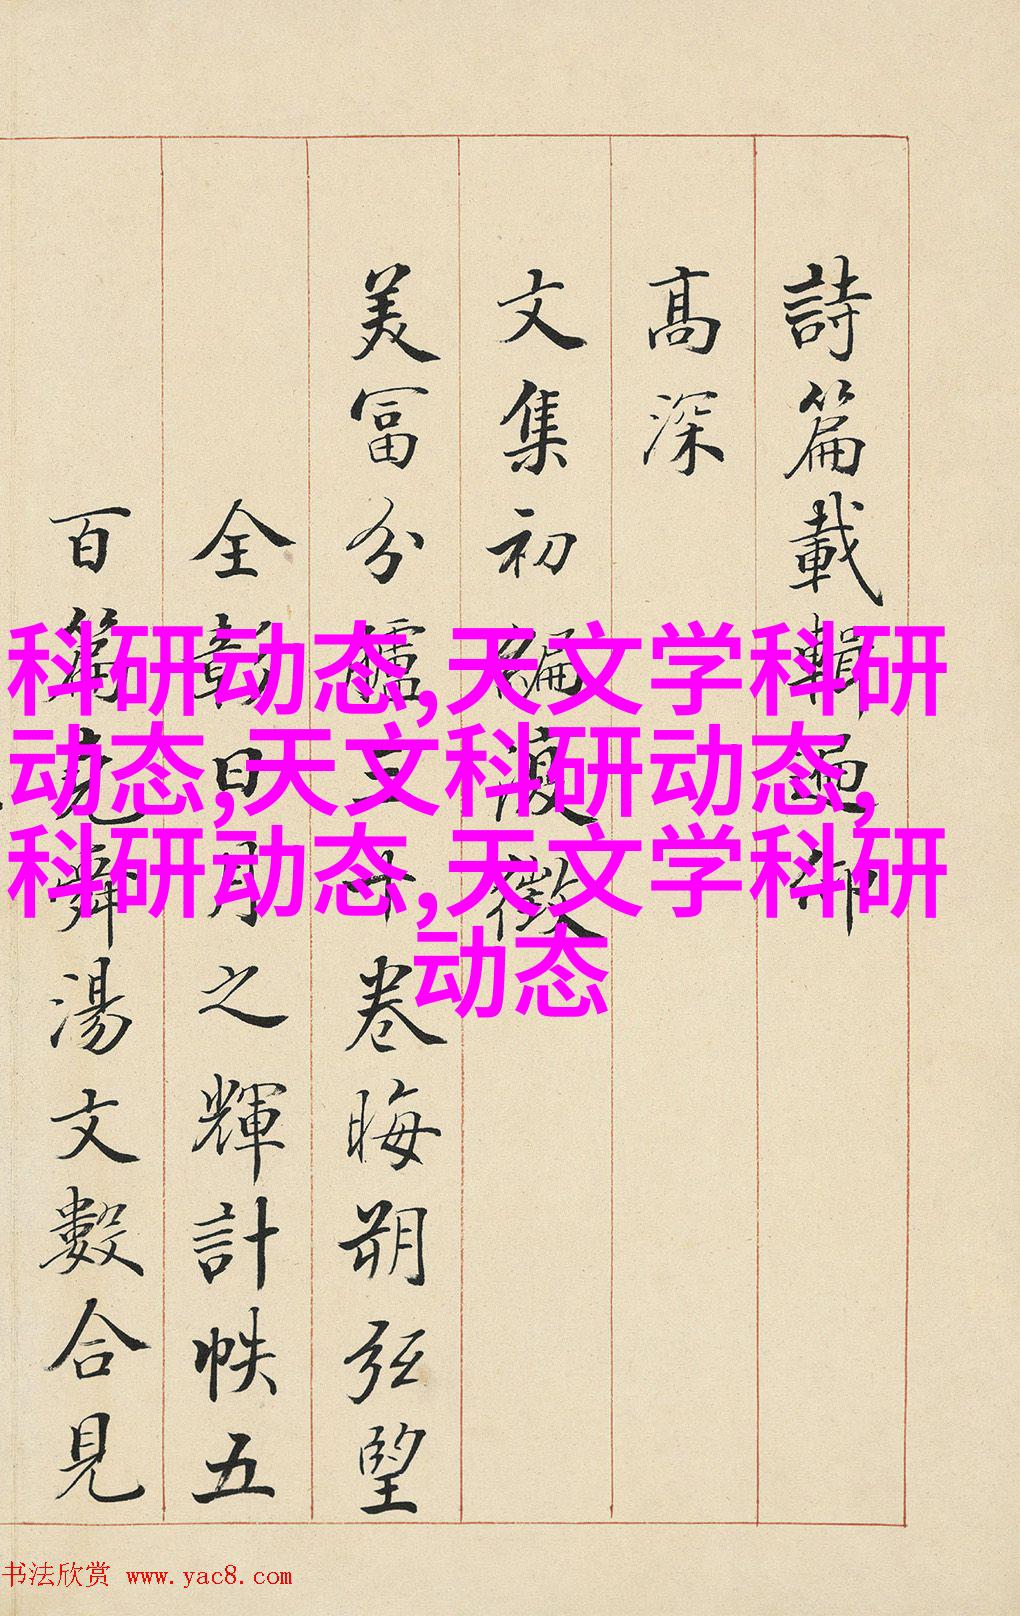 詩篇載輯迴仰
高深
文集初編復徵
美富分臚三十卷晦朔弦望
全彰日月之輝計帙五
百篇堯舜湯文數合見
科研动态,天文学科研
动态,天文科研动态,
科研动态,天文学科研
动态
书法欣赏 www.yac8.com